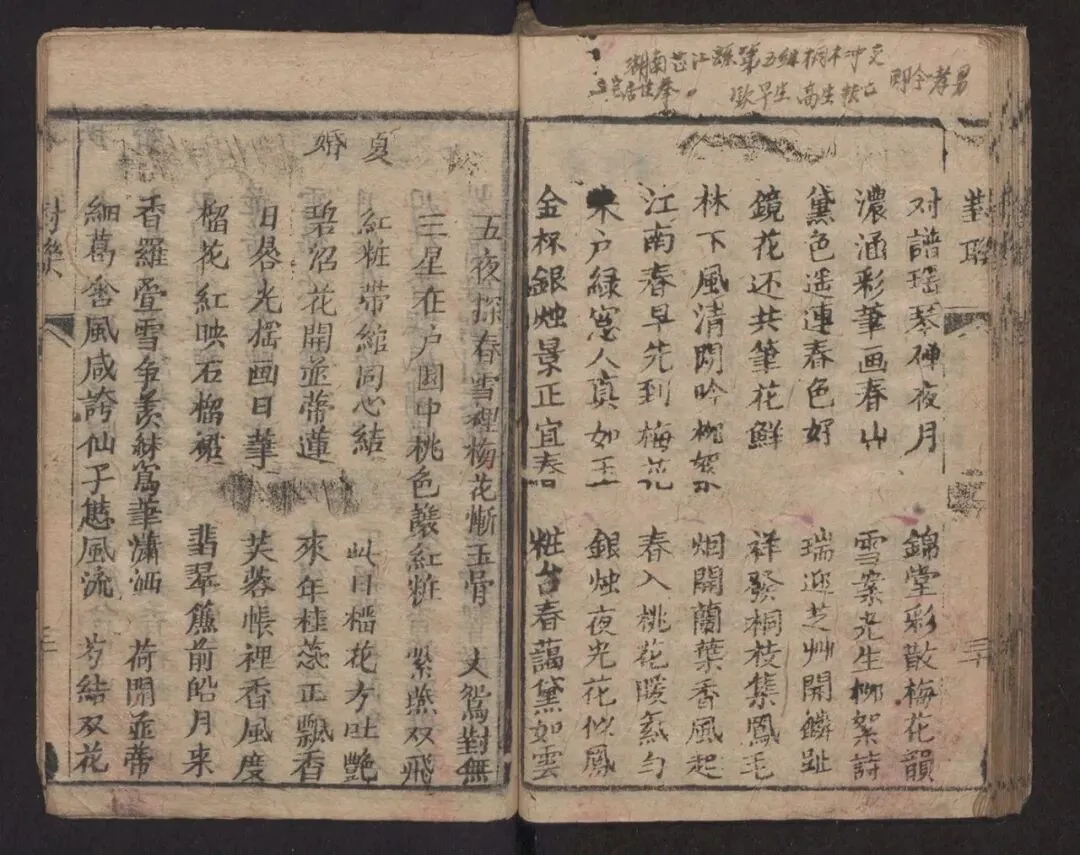 湖南芷江縣第五組桐木冲文
高生
對聯
对譜瑶琴弹夜月 錦堂彩散梅花韻
濃涵彩筆画春山 雪案光生柳絮詩
黛色遥連春色好 瑞迎芝艸開麟趾
鏡花还共筆花鮮 祥發桐枝集鳳毛
林下風清閑吟柳絮 烟開蘭葉香風起
江南春早先到梅花 春入桃花暖氣勻
朱户緑窓人真如玉 銀烛夜光花似鳳
金杯銀烛景正宜春 粧台春藹黛如雲
三十
五夜探春雪裡梅花慚玉骨 文鴛對無
三星在户園中桃色讓紅粧 紫燕双飛
夏婚
紅粧帶綰同心結 此日榴花方吐艷
碧沼花開並蒂蓮 來年桂蕊正飄香
日晷光摇画日華 芙蓉帳裡香風度
榴花紅映石榴裙 翡翠簾前皓月来
香羅疊雪争羡 華瀟洒 荷開並蒂
細葛含風咸誇仙子 風流 芍結双花